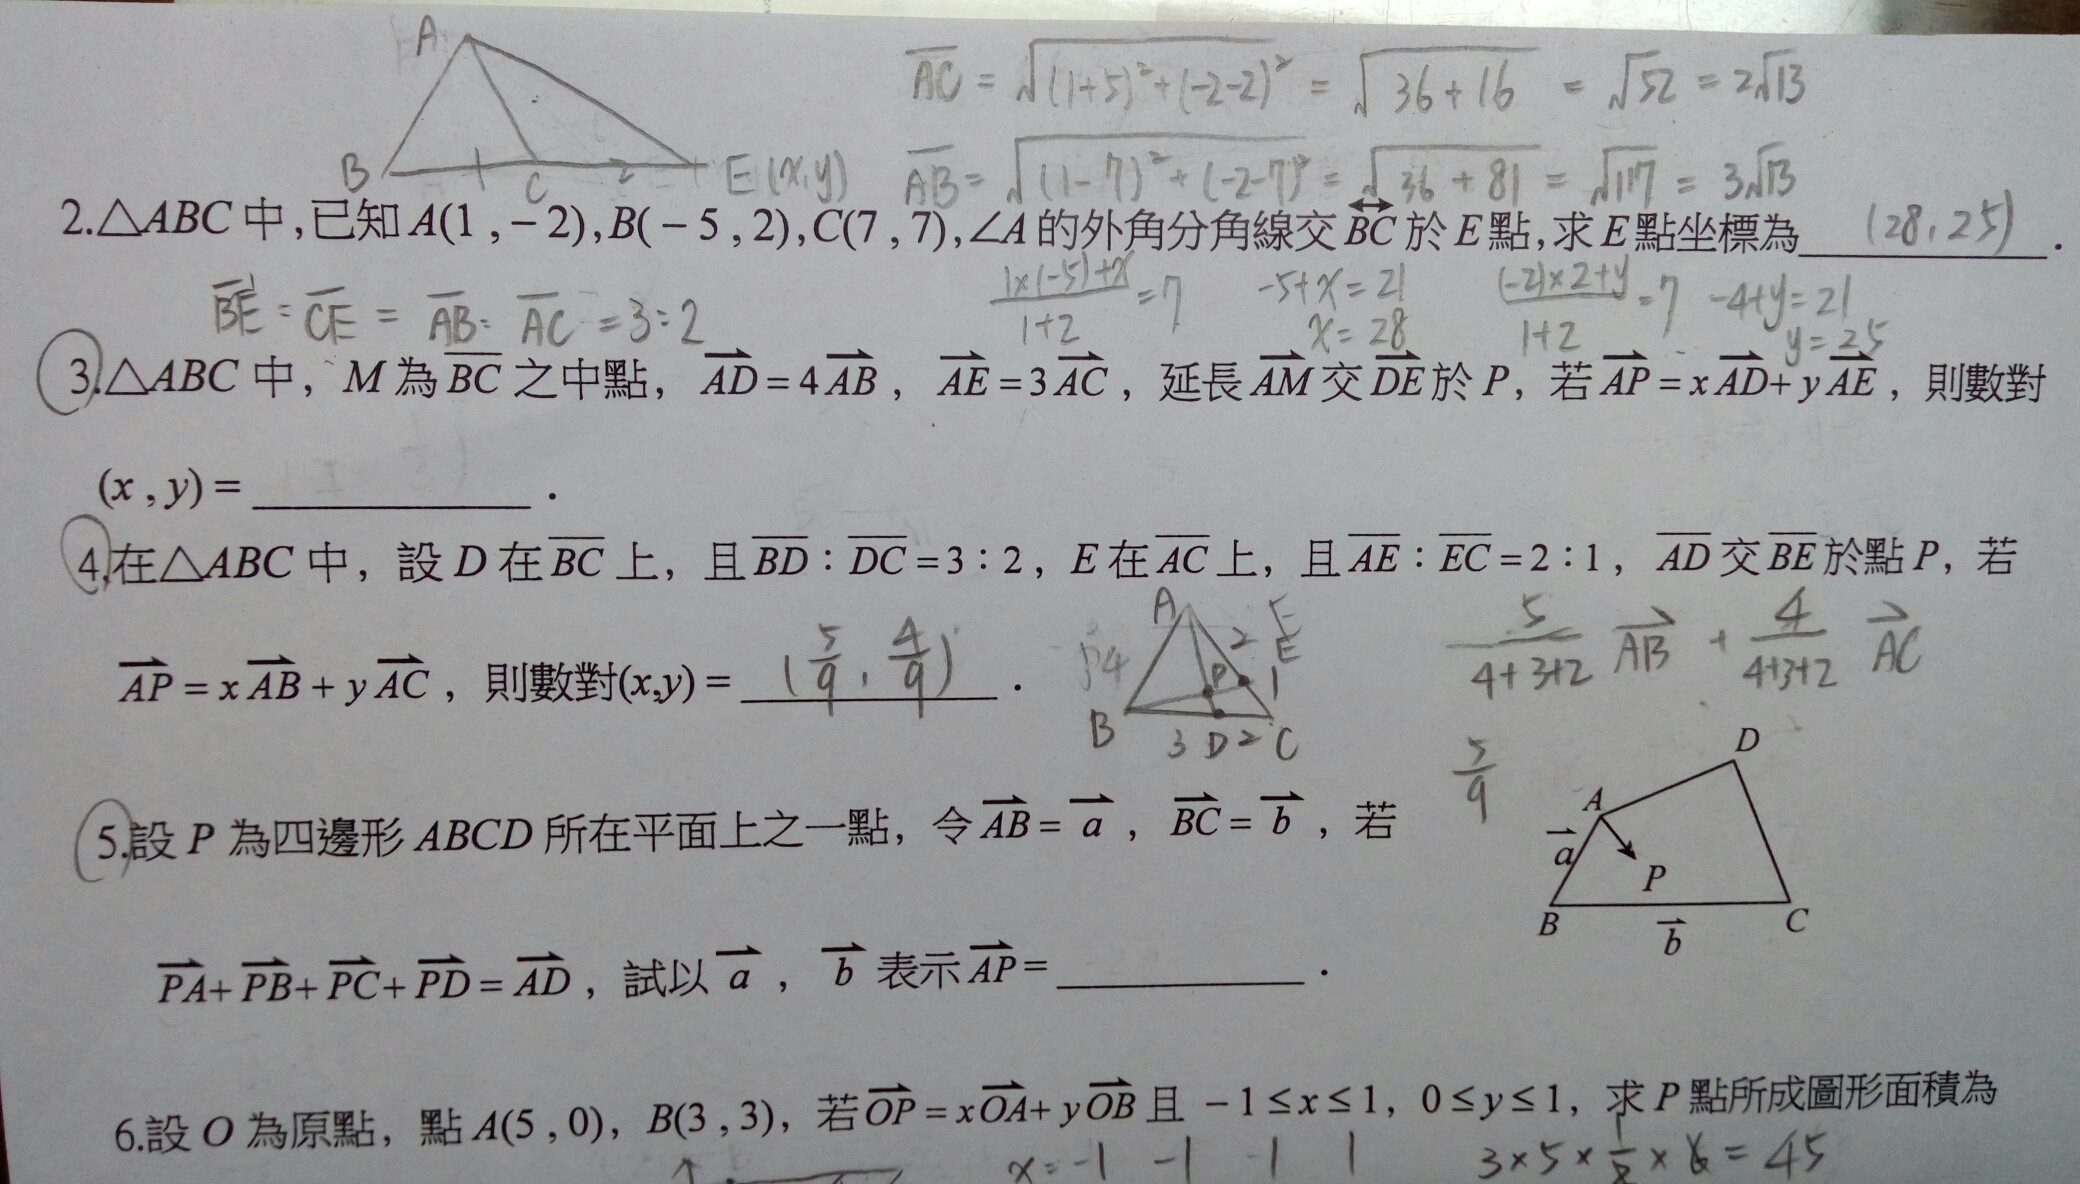 A
B
C
2
E(x,y)
AC = √(1+5)²+(-2-2)² = √36+16 = √52 = 2√13
AB = √(1-7)²+(-2-7)² = √36+81 = √117 = 3√13
2.△ABC 中,已知 A(1,-2),B(-5,2),C(7,7),∠A 的外角分角線交 BC 於 E 點,求 E 點坐標為 (28,25) .
BE : CE = AB : AC = 3:2
1×(-5)+x / 1+2 = 7
-5+x=21
x=28
(-2)×2+y / 1+2 = 7
-4+y=21
y=25
3.△ABC 中，M 為 BC 之中點，AD = 4 AB，AE = 3 AC，延長 AM 交 DE 於 P，若 AP = x AD + y AE，則數對
(x , y) = ________ .
4.在△ABC 中，設 D 在 BC 上，且 BD：DC = 3：2，E 在 AC 上，且 AE：EC = 2：1，AD 交 BE 於點 P，若
AP = x AB + y AC，則數對(x,y) = (5/9, 4/9) .
A
2
E
E
P
1
B
3 D 2 C
5/4+3+2 AB + 4/4+3+2 AC
5/9
5.設 P 為四邊形 ABCD 所在平面上之一點，令 AB = a，BC = b，若
PA + PB + PC + PD = AD，試以 a，b 表示 AP = ________ .
D
A
a
P
B
C
b
6.設 O 為原點，點 A(5 , 0)，B(3 , 3)，若 OP = x OA + y OB 且 -1 ≤ x ≤ 1，0 ≤ y ≤ 1，求 P 點所成圖形面積為
x=-1 -1 1 1